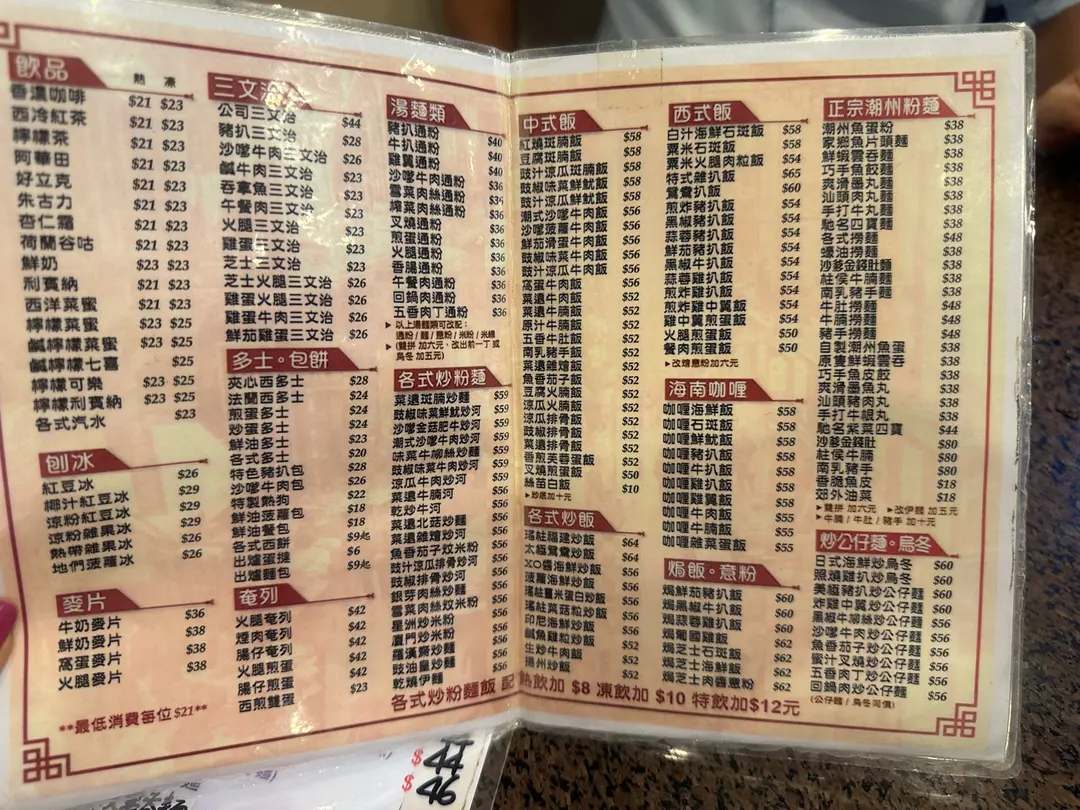 飲品
熱 凍
香濃咖啡 $21 $23
西冷紅茶 $21 $23
檸檬茶 $21 $23
阿華田 $21 $23
好立克 $21 $23
朱古力 $21 $23
杏仁霜 $21 $23
荷蘭谷咕 $21 $23
鮮奶 $23 $23
利賓納 $21 $23
西洋菜蜜 $21 $23
檸檬菜蜜 $23 $25
鹹檸檬菜蜜 $23 $25
鹹檸檬七喜 $25
檸檬可樂 $23 $25
檸檬利賓納 $23 $25
各式汽水 $23
刨冰
紅豆冰 $26
椰汁紅豆冰 $29
涼粉紅豆冰 $29
涼粉雜果冰 $29
熱帶雜果冰 $26
地們菠蘿冰 $26
麥片
牛奶麥片 $36
鮮奶麥片 $38
窩蛋麥片 $38
火腿麥片 $38
**最低消費每位$21**
三文治
公司三文治 $44
豬扒三文治 $28
沙嗲牛肉三文治 $26
鹹牛肉三文治 $23
吞拿魚三文治 $23
午餐肉三文治 $23
火腿三文治 $23
雞蛋三文治 $23
芝士三文治 $23
芝士火腿三文治 $26
雞蛋火腿三文治 $26
雞蛋牛肉三文治 $26
鮮茄雞蛋三文治 $26
多士。包餅
夾心西多士 $28
法蘭西多士 $24
煎蛋多士 $24
炒蛋多士 $23
鮮油多士 $24
各式多士 $20
特色豬扒包 $28
沙嗲牛肉包 $26
特製熱狗 $22
鮮油菠蘿包 $18
鮮油餐包 $18
各式西餅 $9起
出爐蛋撻 $6
出爐麵包 $9起
奄列
火腿奄列 $42
煙肉奄列 $42
腸仔奄列 $42
火腿煎蛋 $42
腸仔煎蛋 $42
西煎雙蛋 $23
湯麵類
豬扒通粉 $40
牛扒通粉 $40
雞翼通粉 $40
沙嗲牛肉通粉 $36
雪菜肉絲通粉
榨菜肉絲通粉 $36
叉燒通粉 $36
煎蛋通粉 $36
火腿通粉 $36
香腸通粉 $36
午餐肉通粉 $36
回鍋肉通粉 $36
五香肉丁通粉 $36
▶以上湯麵類可改配：
通粉 / 麵 / 意粉 / 米粉 / 米線
▶(雙拼 加六元，改出前一丁 或
烏冬 加五元)
各式炒粉麵
菜遠斑腩炒麵 $59
豉椒味菜鮮魷炒河 $59
沙嗲金菇肥牛炒河 $59
潮式沙嗲牛肉炒河 $59
味菜牛柳絲炒麵 $56
豉椒味菜牛肉炒河 $56
涼瓜牛肉炒河 $56
菜遠牛腩河 $56
乾炒牛河 $56
菜遠北菇炒麵 $56
菜遠雞燴炒河 $56
魚香茄子炆米粉 $56
豉汁涼瓜排骨炒河 $56
豉椒排骨炒河 $56
銀芽肉絲炒麵 $56
雪菜肉絲炆米粉 $56
星洲炒米粉 $56
廈門炒米粉 $56
羅漢齋炒麵 $56
豉油皇炒麵 $56
乾燒伊麵 $56
各式炒粉麵飯 配熱飲加 $8 凍飲加 $10 特飲加$12元
中式飯
紅燒斑腩飯 $58
豆腐斑腩飯 $58
豉汁涼瓜斑腩飯 $58
豉椒味菜鮮魷飯 $58
豉汁涼瓜鮮魷飯 $58
潮式沙嗲牛肉飯 $56
沙嗲菠蘿牛肉飯 $56
鮮茄滑蛋牛肉飯 $56
豉椒味菜牛肉飯 $56
豉汁涼瓜牛肉飯 $56
窩蛋牛肉飯 $56
菜遠牛肉飯 $52
菜遠牛腩飯 $52
原汁牛腩飯 $52
五香牛肚飯 $52
南乳豬手飯 $52
菜遠雞燴飯 $52
魚香茄子飯 $52
豆腐火腩飯 $52
涼瓜火腩飯 $52
涼瓜排骨飯 $52
豉椒排骨飯 $52
菜遠排骨飯 $52
香煎芙蓉蛋飯 $52
叉燒煎蛋飯 $50
絲苗白飯 $10
▶炒底加十元
各式炒飯
瑤柱福建炒飯 $64
太極鴛鴦炒飯 $64
XO醬海鮮炒飯 $56
菠蘿海鮮炒飯 $56
瑤柱薑米蛋白炒飯 $56
瑤柱菜菇粒炒飯 $56
印尼海鮮炒飯 $56
鹹魚雞粒炒飯 $56
生炒牛肉飯 $52
揚州炒飯 $52
西式飯
白汁海鮮石斑飯 $58
粟米石斑飯 $58
粟米火腿肉粒飯 $54
特式雜扒飯 $65
鴛鴦扒飯 $60
煎炸豬扒飯 $54
黑椒豬扒飯 $54
蒜蓉豬扒飯 $54
鮮茄豬扒飯 $54
黑椒牛扒飯 $54
蒜蓉雞扒飯 $54
煎炸雞扒飯 $54
煎炸雞中翼飯 $54
雞中翼煎蛋飯 $54
火腿煎蛋飯 $50
餐肉煎蛋飯 $50
▶改燴意粉加六元
海南咖喱
咖喱海鮮飯 $58
咖喱石斑飯 $58
咖喱鮮魷飯 $58
咖喱豬扒飯 $58
咖喱牛扒飯 $58
咖喱雞扒飯 $58
咖喱雞翼飯 $58
咖喱牛肉飯 $55
咖喱牛腩飯 $55
咖喱雜菜蛋飯 $55
焗飯。意粉
焗鮮茄豬扒飯 $60
焗黑椒牛扒飯 $60
焗蒜蓉雞扒飯 $60
焗葡國雞飯 $60
焗芝士石斑飯 $62
焗芝士海鮮飯 $62
焗芝士肉醬意粉 $62
正宗潮州粉麵
潮州魚蛋粉 $38
家鄉魚片頭麵 $38
鮮蝦雲吞麵 $38
巧手魚餃麵 $38
爽滑墨丸麵 $38
汕頭肉丸麵 $38
手打牛丸麵 $38
馳名四寶麵 $38
各式撈麵 $48
蠔油撈麵 $38
沙嗲金錢肚麵 $38
柱侯牛腩麵 $38
南乳豬手麵 $38
牛肚撈麵 $48
牛腩撈麵 $48
豬手撈麵 $48
自製潮州魚蛋 $38
原隻鮮蝦雲吞 $38
巧手魚皮餃 $38
爽滑墨魚丸 $38
汕頭豬肉丸 $38
手打牛根丸 $38
馳名紫菜四寶 $44
沙嗲金錢肚 $80
柱侯牛腩 $80
南乳豬手 $80
香脆魚皮 $18
郊外油菜 $18
▶雙拼 加六元 ▶改伊麵 加五元
▶牛腩 / 牛肚 / 豬手 加十元
炒公仔麵。烏冬
日式海鮮炒烏冬 $60
照燒雞扒炒烏冬 $60
美極豬扒炒公仔麵 $60
炸雞中翼炒公仔麵 $60
黑椒牛柳絲炒公仔麵 $56
沙嗲牛肉炒公仔麵 $56
魚香茄子炒公仔麵 $56
蜜汁叉燒炒公仔麵 $56
五香肉丁炒公仔麵 $56
回鍋肉炒公仔麵 $56
(公仔麵 / 烏冬同價)
$44
$46